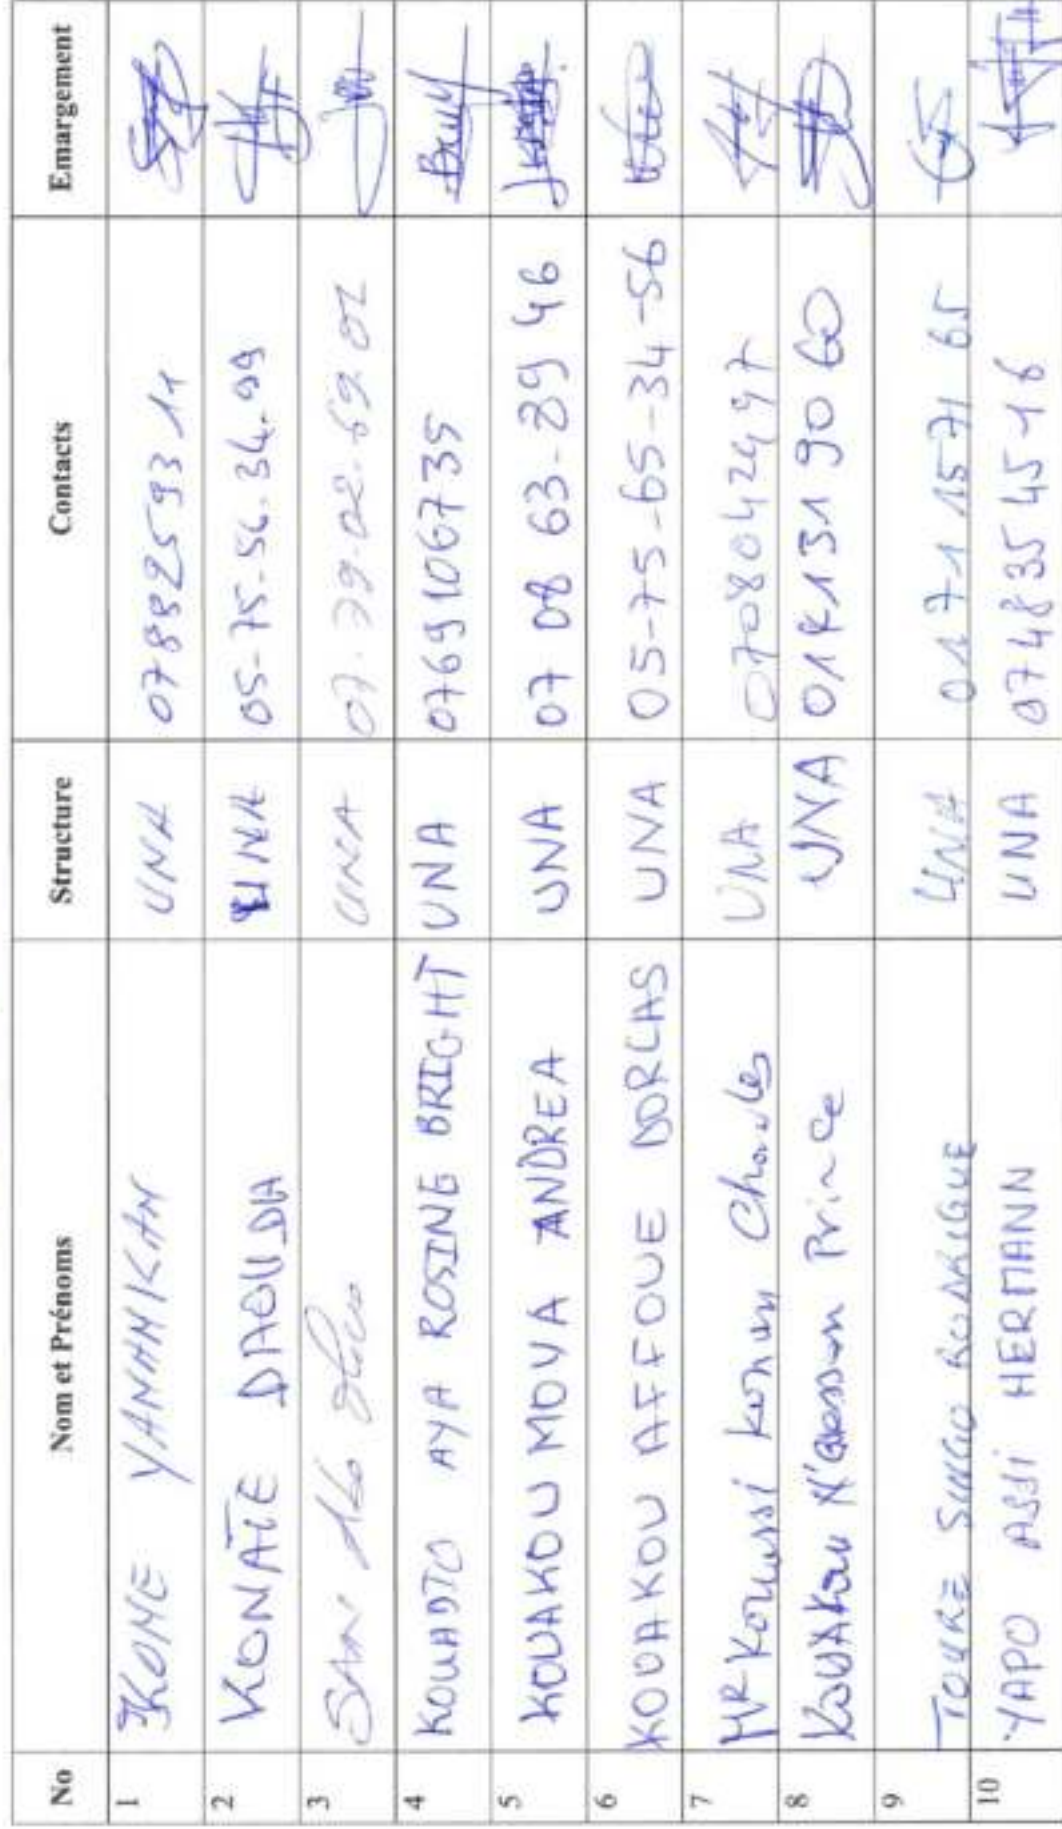 No Nom et Prénoms Structure Contacts Emargement
1 KONE YANAHIKAN UNA 0788259311
2 KONATE DAOUDA UNA 05-75-56.34.99
3 SAN UNA 07.79.02.69.02
4 KOUADIO AYA ROSINE BRIGHT UNA 0769106735
5 KOUAKOU MOYA ANDREA UNA 07 08 63-89 46
6 KOUAKOU AFFOUE DORCAS UNA 05-75-65-34-56
7 MR Kouassi konan Charles UNA 0708042497
8 KOUAKou N'Guessan Prince UNA 90 60
9 TOURE RODRIGUE UNA 0171 1571 65
10 YAPO ASSI HERMANN UNA 0748354516